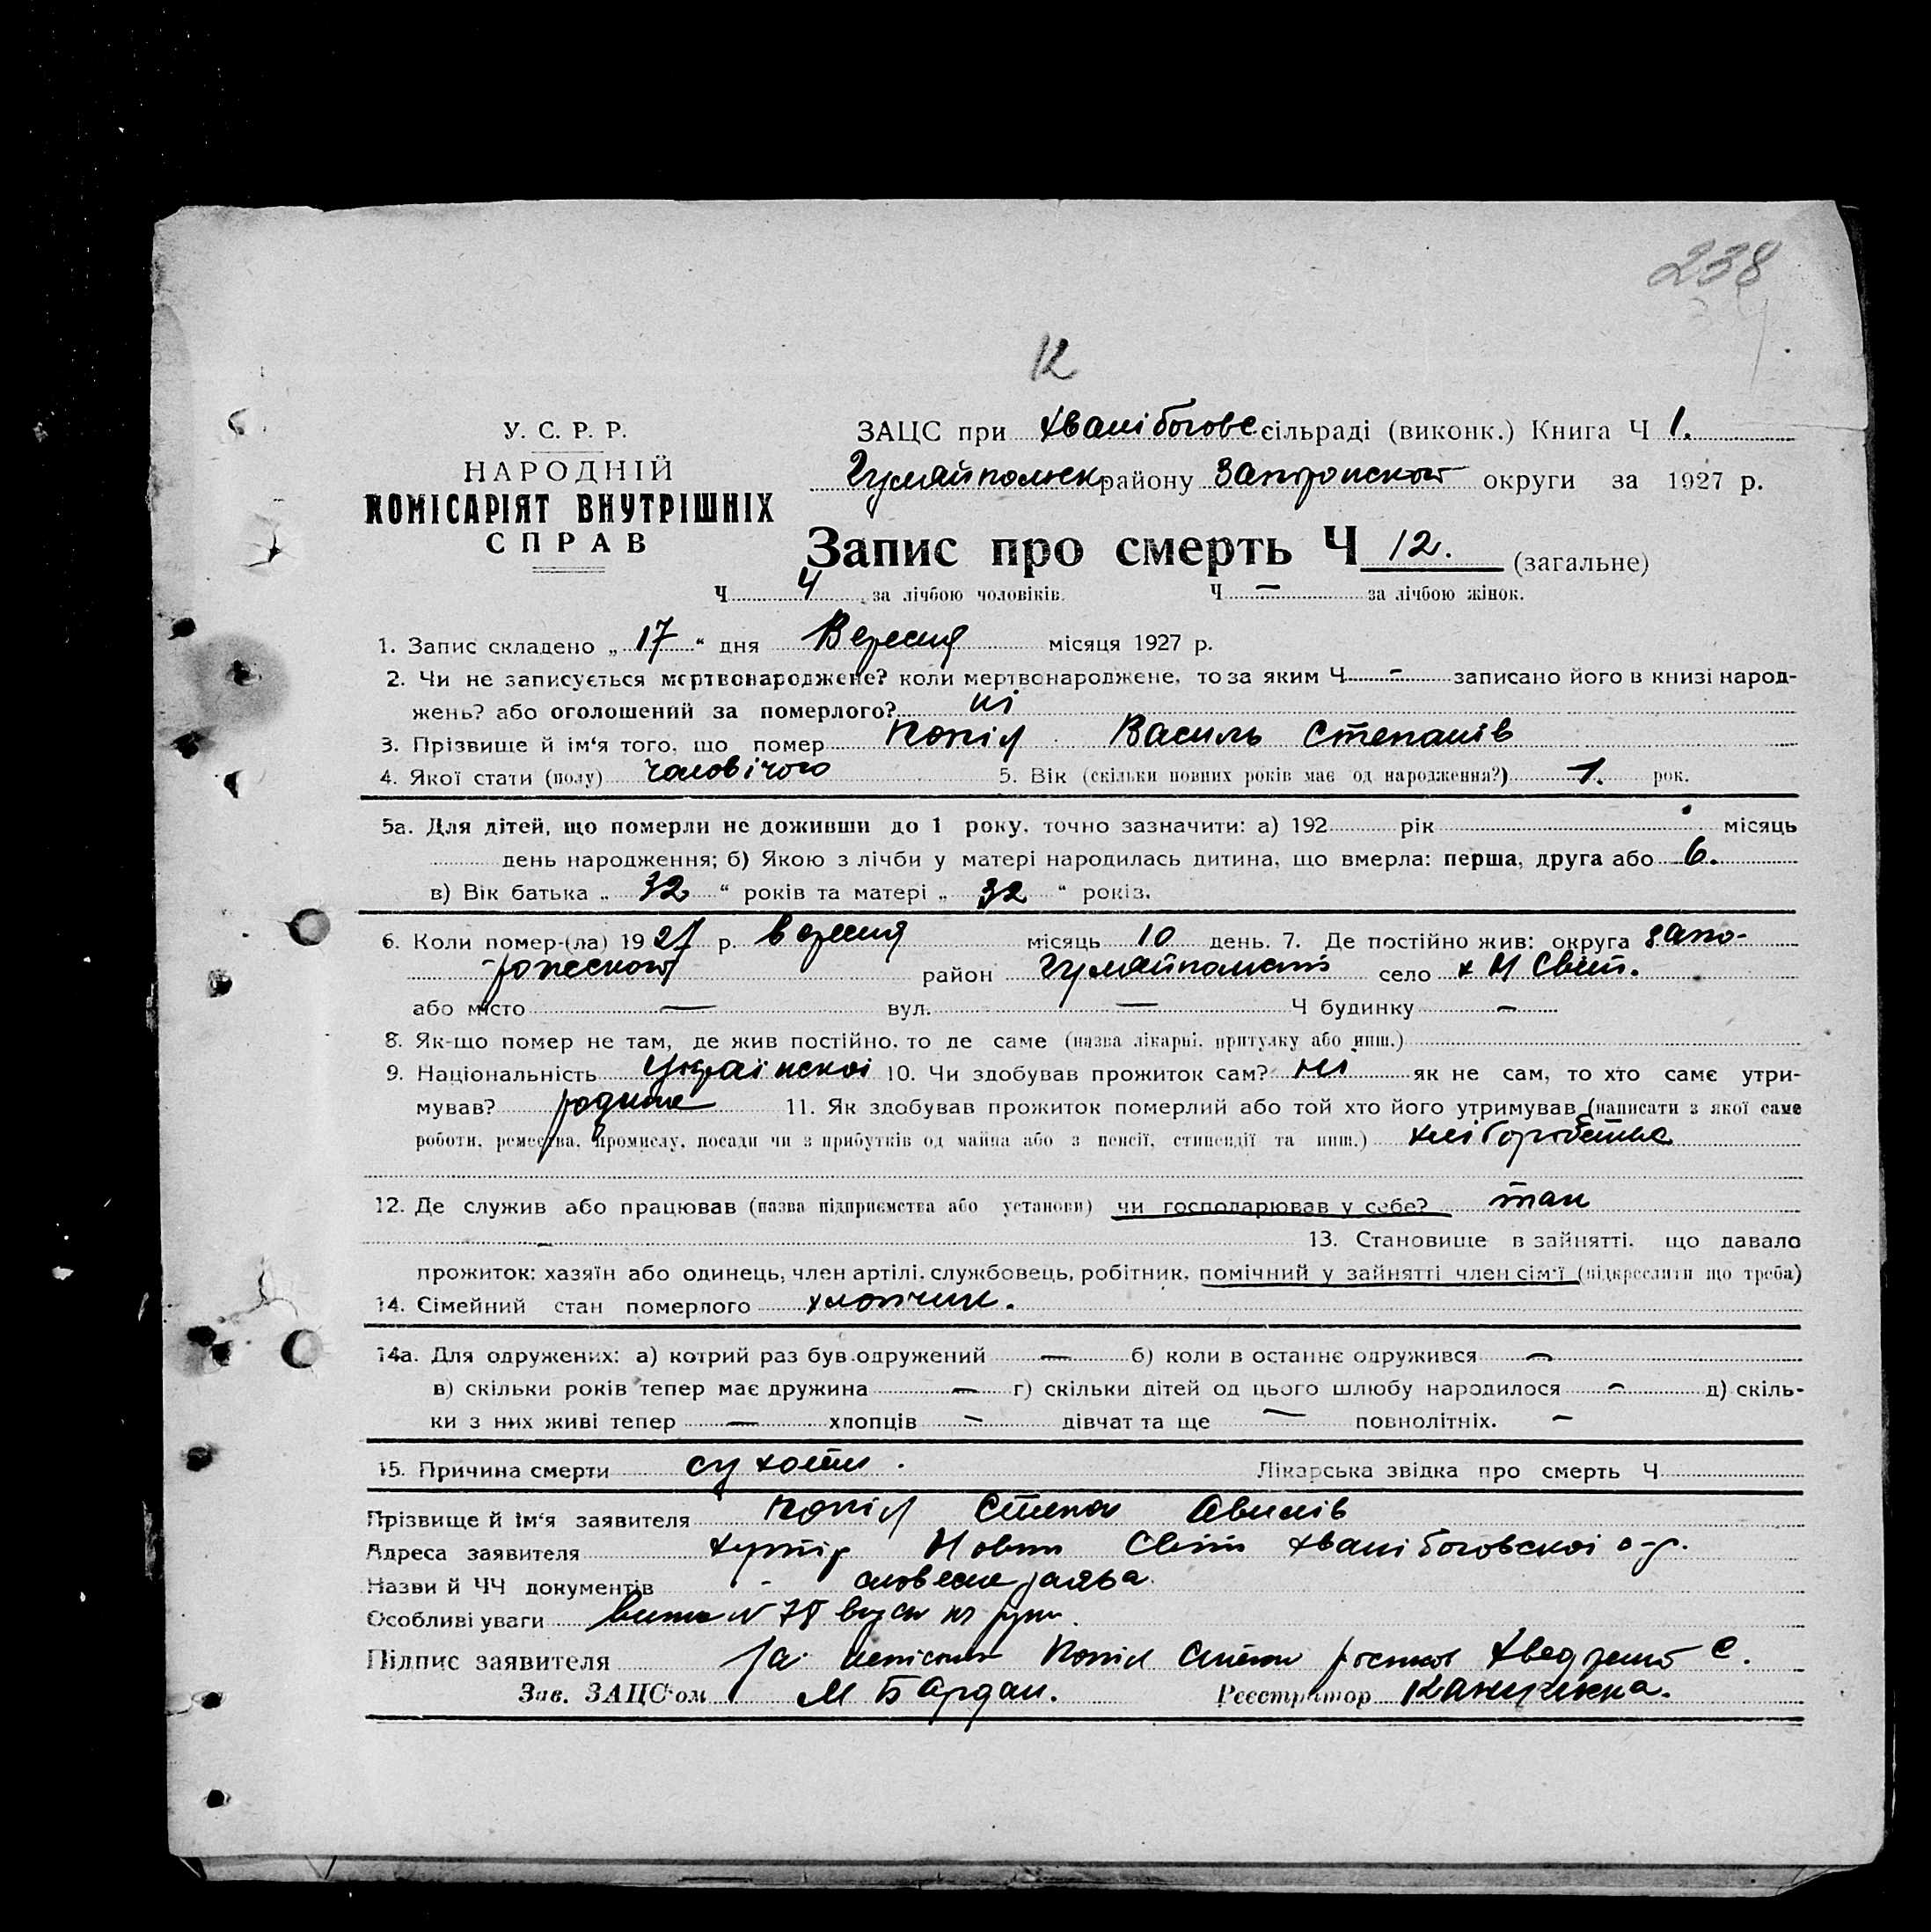 238
12
У. С. Р. Р.
НАРОДНІЙ
КОМІСАРІЯТ ВНУТРІШНІХ
СПРАВ
ЗАЦС при Хванібогове сільраді (виконк.) Книга Ч 1.
Гуляйпольск району Запорожской округи за 1927 р.
Запис про смерть Ч 12. (загальне)
Ч 4 за лічбою чоловіків. Ч — за лічбою жінок.
1. Запис складено „ 17 “ дня Вересня місяця 1927 р.
2. Чи не записується мертвонароджене? коли мертвонароджене, то за яким Ч - записано його в книзі народ-
жень? або оголошений за померлого? ні
3. Прізвище й ім‘я того, що помер Копіл Василь Степанів
4. Якої стати (полу) чоловічого 5. Вік (скільки повних років має од народження?) 1. рок.
5а. Для дітей, що померли не доживши до 1 року, точно зазначити: а) 192 рік місяць
день народження; б) Якою з лічби у матері народилась дитина, що вмерла: перша, друга або 6.
в) Вік батька „ 32 “ років та матері „ 32 “ років.
6. Коли помер-(ла) 1927 р. вересня місяць 10 день. 7. Де постійно жив: округа Запо-
район село х Н Світ.
або місто — вул. — Ч будинку -
8. Як-що помер не там, де жив постійно, то де саме (назва лікарні, притулку або инш.)
9. Національність Української 10. Чи здобував прожиток сам? ні як не сам, то хто саме утри-
мував? родина 11. Як здобував прожиток померлий або той хто його утримував (написати з якої саме
роботи, ремества, промислу, посади чи з прибутків од майна або з пенсії, стипендії та инш.)
12. Де служив або працював (назва підприємства або установи) чи господарював у себе? так
- 13. Становище в зайнятті, що давало
прожиток: хазяїн або одинець, член артілі, службовець, робітник, помічний у зайнятті член сім‘ї (підкреслити що треба)
14. Сімейний стан померлого хлопчик.
14а. Для одружених: а) котрий раз був одружений — б) коли в останнє одружився -
в) скільки років тепер має дружина - г) скільки дітей од цього шлюбу народилося - д) скіль-
ки з них живі тепер — хлопців - дівчат та ще — повнолітніх. -
15. Причина смерти сухоти. Лікарська звідка про смерть Ч
Прізвище й ім‘я заявителя Копіл Степан
Адреса заявителя хутір Новий Світ Хванібоговскої с-р.
Назви й ЧЧ документів - словесна заява
Особливі уваги N 78
Підпис заявителя За Копіл Степан С.
Зав. ЗАЦС‘ом М Бардан. Реєстратор